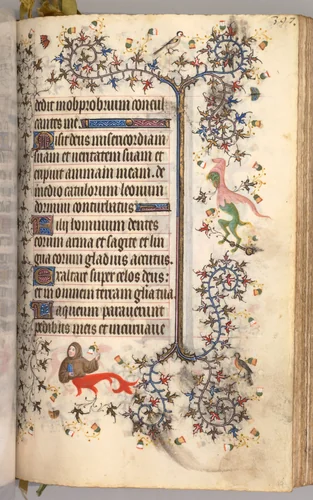 397.
dedit in obprobrium concul
cantes me.
Misit deus misericordiam
suam et ueritatem suam et
eripuit animam meam. de
medio catulorum leonum
dormiui conturbatus
Filij hominum dentes
eorum arma et sagitte et lin
gua eorum gladius acutus.
Exaltare super celos deus:
et in omnem terram gloria tua.
Laqueum parauerunt
pedibus meis et incuruaue